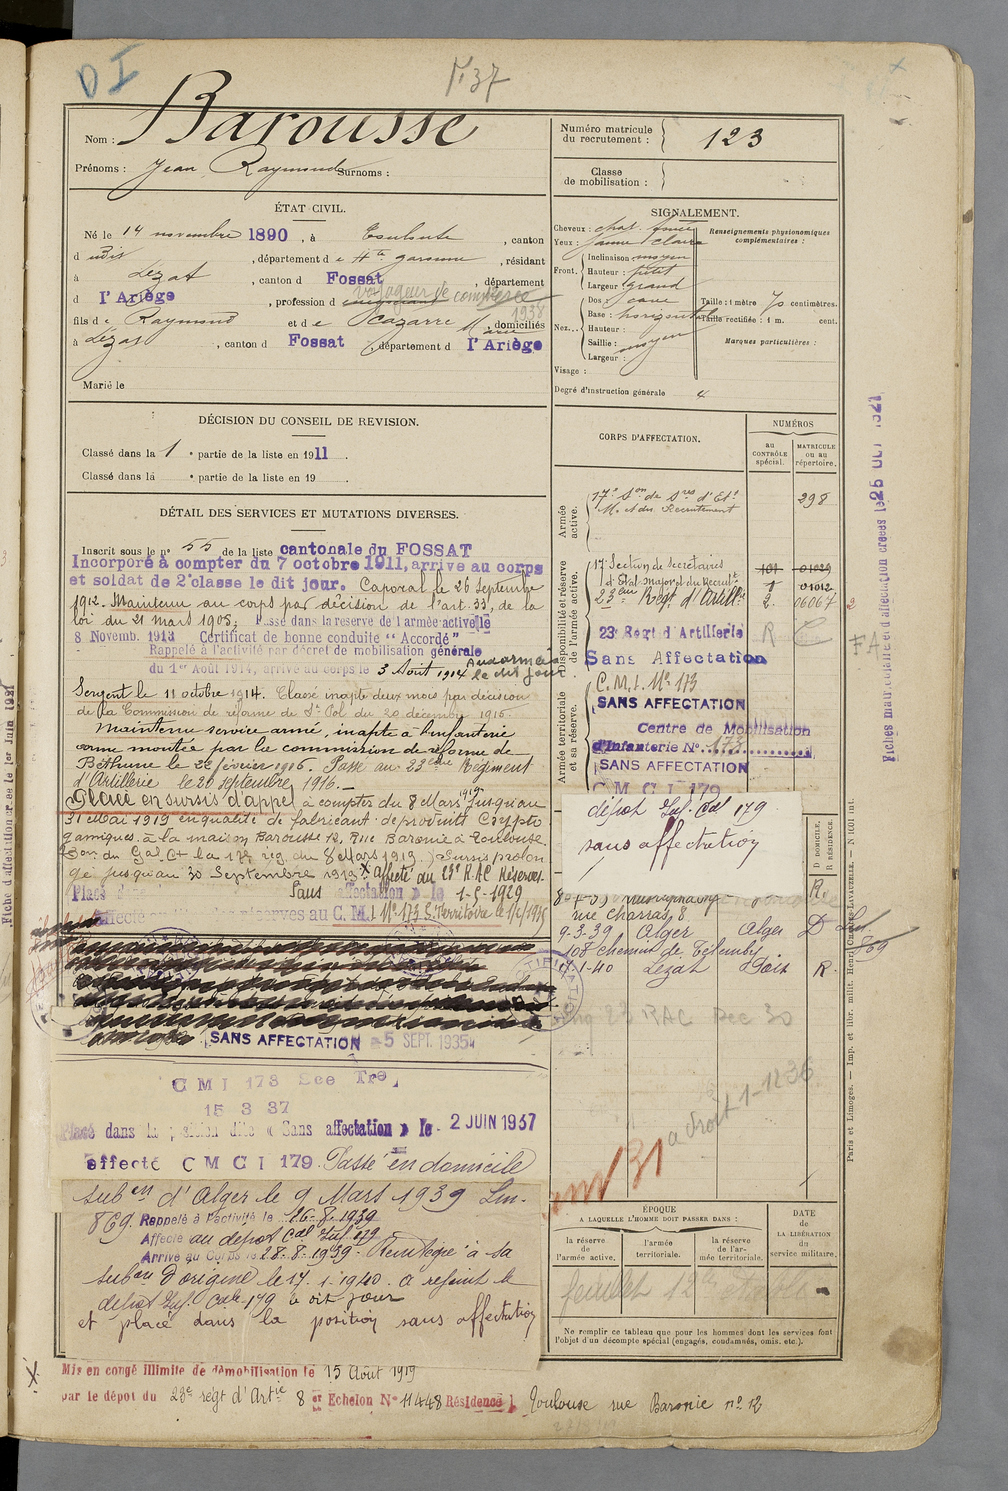 D I
Barousse
Nom :
Prénoms : Jean, Raymond Surnoms :
ÉTAT CIVIL.
Né le 14 novembre 1890, à Toulouse, canton
d udit, département de Hte garonne, résidant
à Lézat, canton d Fossat, département
d l'Ariège, profession d voyageur de commerce
1938
fils de Raymond et de Cazarre Marie, domiciliés
à Lézat, canton d Fossat, département d l'Ariège
Marié le
DÉCISION DU CONSEIL DE REVISION.
Classé dans la 1e partie de la liste en 1911.
Classé dans la e partie de la liste en 19 .
DÉTAIL DES SERVICES ET MUTATIONS DIVERSES.
Inscrit sous le n° 55 de la liste cantonale du FOSSAT
Incorporé à compter du 7 octobre 1911, arrive au corps
et soldat de 2e classe le dit jour. Caporal le 26 Septembre
1912. Maintenu au corps par décision de l'art. 33, de la
loi du 21 mars 1905, Passé dans la réserve de l'armée active le
8 Novemb. 1913 Certificat de bonne conduite "Accordé"
Rappelé à l'activité par décret de mobilisation générale
du 1er Août 1914, arrivé au corps le 3 Août 1914 Aux armées le dit jour
Sergent le 11 octobre 1914. Classé inapte deux mois par décision
de la Commission de réforme de St Pol du 20 décembre 1915.
Maintenu service armé, inapte à l'infanterie
arme montée par la commission de réforme de
Béthune le 22 février 1916. Passé au 23ème Régiment
d'Artillerie le 20 septembre 1916.
Placé en sursis d'appel à compter du 8 Mars 1919 jusqu'au
31 Mai 1919 en qualité de fabricant de produits Crypto
gamiques à la maison Barousse 12, Rue Baronie à Toulouse
(Don du Gal Ct la 17e rég du 8 Mars 1919.) Sursis prolon
gé jusqu'au 30 Septembre 1919. X affecté au 23e R.A.C Réserves.
Placé dans Sans affectation le 1-5-1929
Affecté réserves au C.M.I. N° 173 S. Territoire le
SANS AFFECTATION 5 SEPT. 1935
C M I 173 Sce Tre,
15 3 37
Placé dans la position dite « Sans affectation » le 2 JUIN 1937
affecté C M C I 179. Passé en domicile
subon d'Alger le 9 Mars 1939 Lm.
869. Rappelé à l'activité le 26-8-1939
Affecté au dépôt Cal Inf. 179
Arrivé au Corps le 28.8.1939. Renvoyé à sa
subon d'origine le 17.1.1940. a rejoint le
dépôt Inf. Cale 179 à dit jour
et placé dans la position sans affectation
X. Mis en congé illimité de démobilisation le 15 Août 1919
par le dépôt du 23e régt d'Artie 8er Echelon N° 11448 Résidence Toulouse rue Baronie n° 12
Numéro matricule du recrutement : 123
Classe de mobilisation :
SIGNALEMENT.
Cheveux : chat. foncé
Yeux : jaune clair
Front. Inclinaison moyen
Hauteur : petit
Largeur grand
Nez. Dos : cave
Base : horizontal
Hauteur :
Saillie : moyen
Largeur :
Visage :
Degré d'instruction générale 4
Renseignements physionomiques complémentaires :
Taille : 1 mètre 70 centimètres.
Taille rectifiée : 1 m. cent.
Marques particulières :
CORPS D'AFFECTATION.
NUMÉROS
au CONTRÔLE spécial.
MATRICULE OU AU répertoire.
Armée active.
17e Son de Sres d'Et.
M. et du Recrutement 298
Disponibilité et réserve de l'armée active.
17e Section de Secrétaires 101 01029
d'Etat-Major et du Recrutt 1 01012
23eme Régt d'Artillie 2. 06067
23e Regt d'Artillerie R C
FA
Sans Affectation
Armée territoriale et sa réserve.
C.M.I. N° 173
SANS AFFECTATION
Centre de Mobilisation
d'Infanterie N° 173
SANS AFFECTATION
C M C I 179
dépôt Inf. Cal 179
sans affectation
D DOMICILE. R RÉSIDENCE.
R
rue Charras, 8
9.3.39 Alger Alger D Lm 869
108 chemin de Télemly
17-1-40 Lézat Foix R.
23 RAC Dec 30
a droit 1-1236
ÉPOQUE
A LAQUELLE L'HOMME DOIT PASSER DANS :
la réserve de l'armée active.
l'armée territoriale.
la réserve de l'armée territoriale.
DATE DE LA LIBÉRATION du service militaire.
feuillet 12
Ne remplir ce tableau que pour les hommes dont les services font
l'objet d'un décompte spécial (engagés, condamnés, omis, etc.).
Fiches matriculaire et d'affectation créées le 26 OCT 1921
Paris et Limoges. — Imp. et libr. milit. Henri CHARLES-LAVAUZELLE. — N 1101 int.
Fiche d'affectation créée le 1er Juin 1921